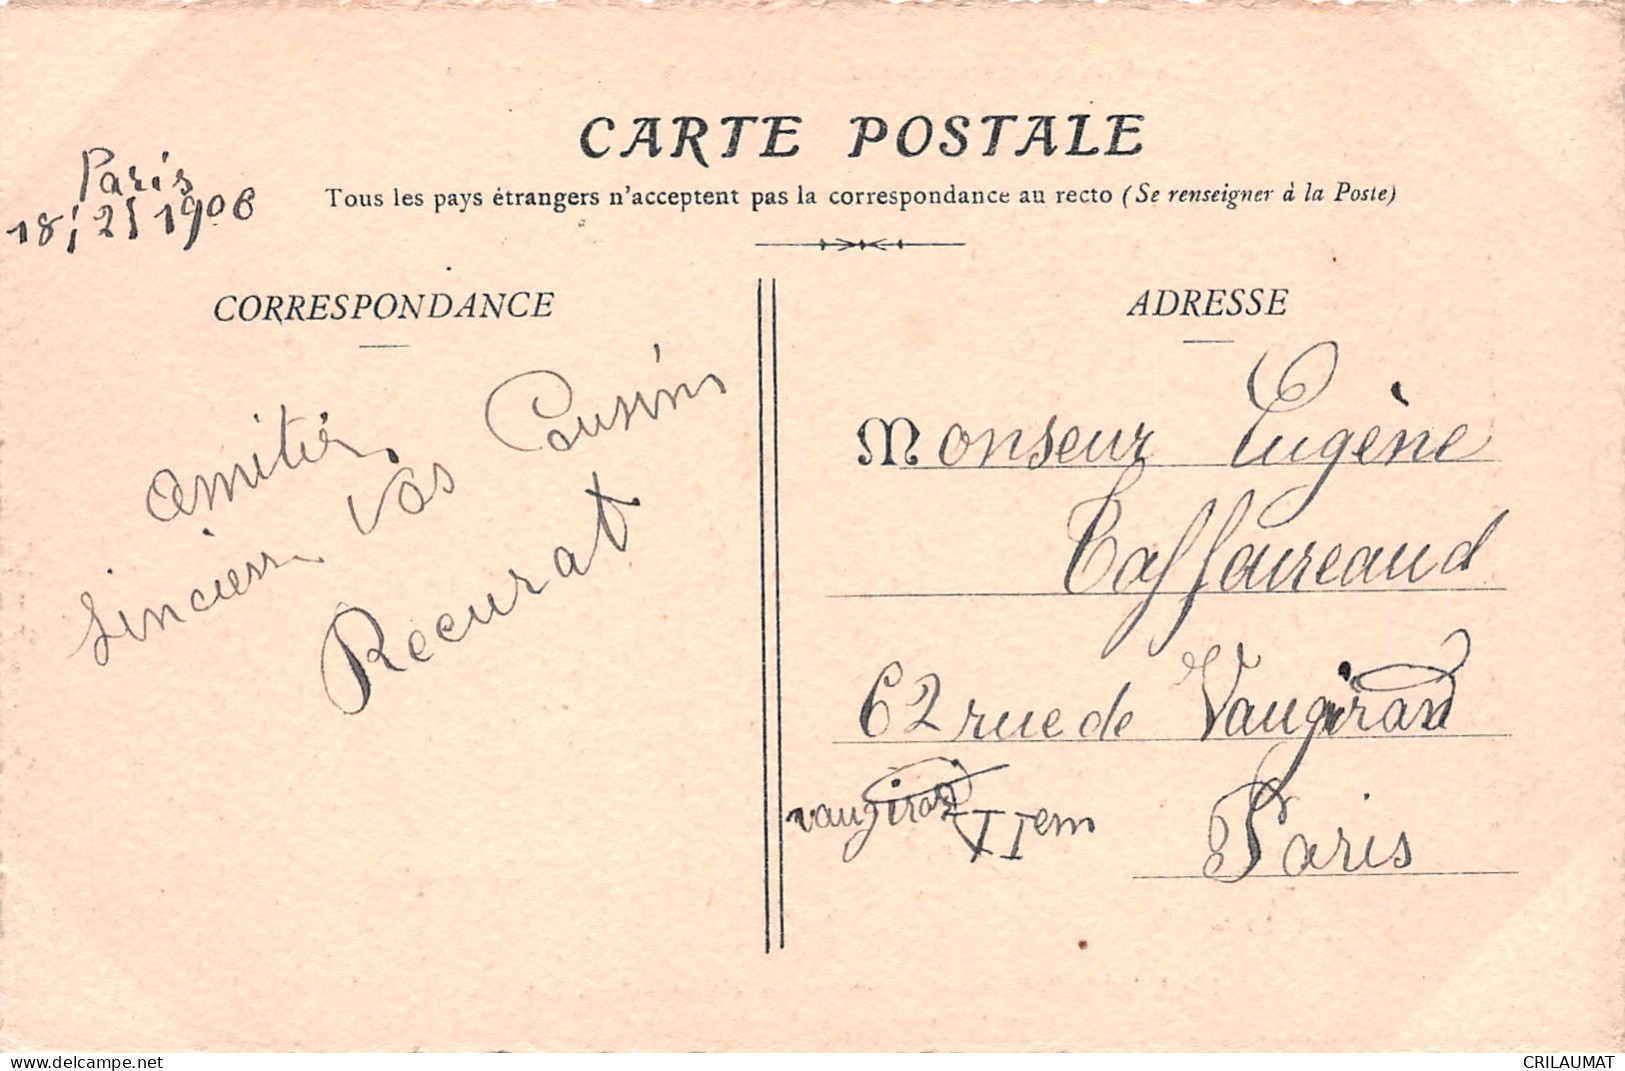 CARTE POSTALE
Tous les pays étrangers n'acceptent pas la correspondance au recto (Se renseigner à la Poste)
Paris
18/2/1906
CORRESPONDANCE
amitiés
Sincières Vos Cousins
Recurat
ADRESSE
Monseur Eugène
Taffoureaud
62 rue de Vaugirard
vaugirard VI Iem
Paris
delcampe.net
CRILAUMAT